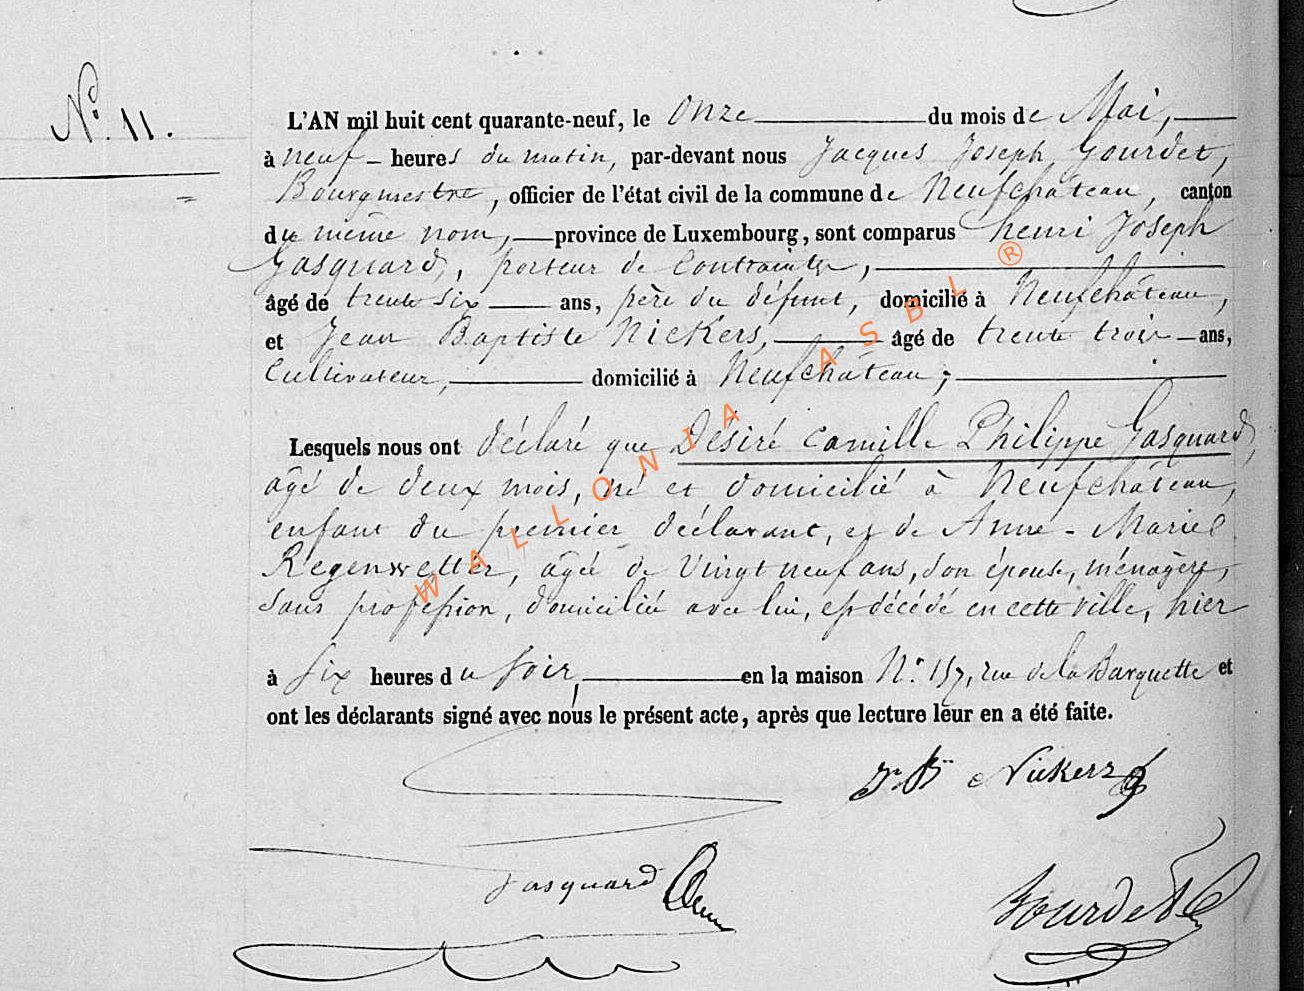 N.º 11.
L'AN mil huit cent quarante-neuf, le Onze du mois de Mai,
à neuf heures du matin, par-devant nous Jacques Joseph Gourdet,
Bourgmestre, officier de l'état civil de la commune de Neufchâteau, canton
du même nom, province de Luxembourg, sont comparus henri Joseph
Gasquard, porteur de Contrainte,
âgé de trente six ans, père du défunt, domicilié à Neufchâteau,
et Jean Baptiste Nickers, âgé de trente trois ans,
Cultivateur, domicilié à Neufchâteau;
Lesquels nous ont déclaré que Désiré Camille Philippe Gasquard,
âgé de deux mois, né et domicilié à Neufchâteau,
enfant du premier déclarant, et de Anne-Marie
Regenwetter, âgée de Vingt neuf ans, son épouse, ménagère,
sans profession, domiciliée avec lui, est décédé en cette ville, hier
à Six heures du soir, en la maison N.º 157, rue de la Barquette et
ont les déclarants signé avec nous le présent acte, après que lecture leur en a été faite.
J. Bte Nickers
Gasquard
Gourdet
WALLONIA ASBL ®